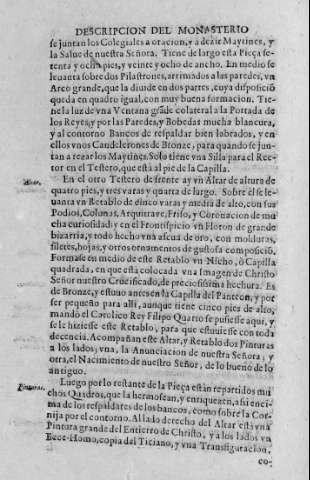 DESCRIPCION DEL MONASTERIO
se juntan los Colegiales a oracion, y a dezir Maytines, y
la Salue de nuestra Señora. Tiene de largo esta Pieça se-
tenta y ocho pies, y veinte y ocho de ancho. En medio se
leuanta sobre dos Pilastrones, arrimados a las paredes, vn
Arco grande, que la diuide en dos partes, cuya disposició
queda en quadro igual, con muy buena formacion. Tie-
ne la luz de vna Ventana gráde colateral a la Portada de
los Reyes, y por las Paredes, y Bobedas mucha blancura,
y al contorno Bancos de respaldar bien lobrados, y en
ellos vnos Candeleroncs de Bronze, para quando se jun-
tan a rezar los Maytines. Solo tiene vna Silla para el Rec-
tor en el Testero, que está al pie de la Capilla.
Altar.
En el otro Testero de frente ay vn Altar de altura de
quatro pies, y tres varas y quarta de largo. Sobre él se le-
uanta vn Retablo de cinco varas y media de alto, con sus
Podios, Colunas, Arquitraue, Friso, y Coronacion de mu
cha curiosidad; y en el Frontispicio vn Floron de grande
bizarria, y todo hecho vna ascua de oro, con molduras,
filetes, hojas, y otros ornamentos de gustosa composició.
Formase en medio de este Retablo vn Nicho, ò Capilla
quadrada, en que está colocada vna Imagen de Christo
Señor nuestro Crucificado, de preciosissima hechura. Es
de Bronze, y estuuo antes en la Capilla del Panteon, y por
ser pequeño para alli, aunque tiene cinco pies de alto,
mandó el Catolico Rey Filipo Quarto se pusiesse aqui, y
se le hiziesse este Retablo, para que estuuiesse con toda
decencia. Acompañan este Altar, y Retablo dos Pinturas
a los lados; vna, la Anunciacion de nuestra Señora; y
otra, el Nacimiento de nuestro Señor, de lo bueno de lo
antiguo.
Pinturas.
Luego por lo restante de la Pieça están repartidos mu
chos Quadros, que la hermosean, y enriquezen, asi enci-
ma de los respaldares de los bancos, como sobre la Cor-
nija por el contorno. Al lado derecho del Altar está vna
Pintura grande del Entierro de Christo, y a los lados vn
Ecce-Homo, copia del Ticiano, y vna Transfiguracion,
co-